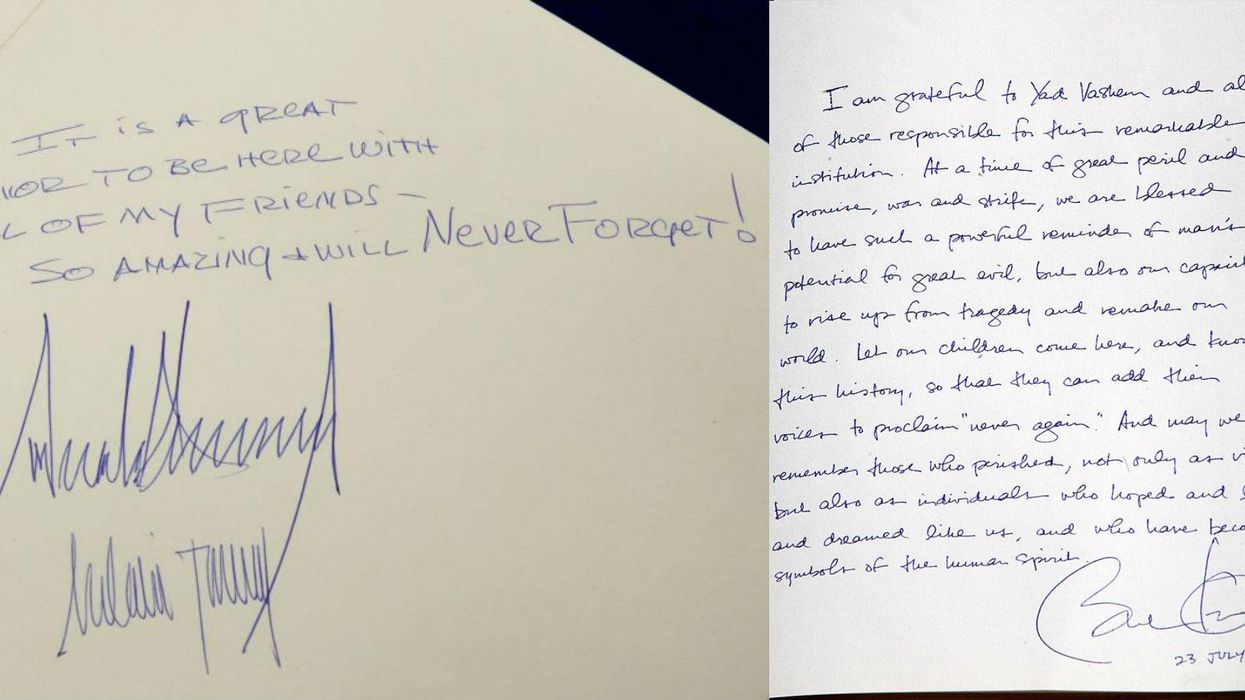 IT IS A GREAT
NOR TO BE HERE WITH
L OF MY FRIENDS –
SO AMAZING + WILL NEVER FORGET!
I am grateful to Yad Vashem and al
of those responsible for this remarkable
institution. At a time of great peril and
promise, war and strife, we are blessed
to have such a powerful reminder of man's
potential for great evil, but also our capacit
to rise up from tragedy and remake our
world. Let our children come here, and know
this history, so that they can add their
voices to proclaim "never again." And may we
remember those who perished, not only as vi
but also as individuals who hoped and l
and dreamed like us, and who have beco
symbols of the human spirit.
23 JULY